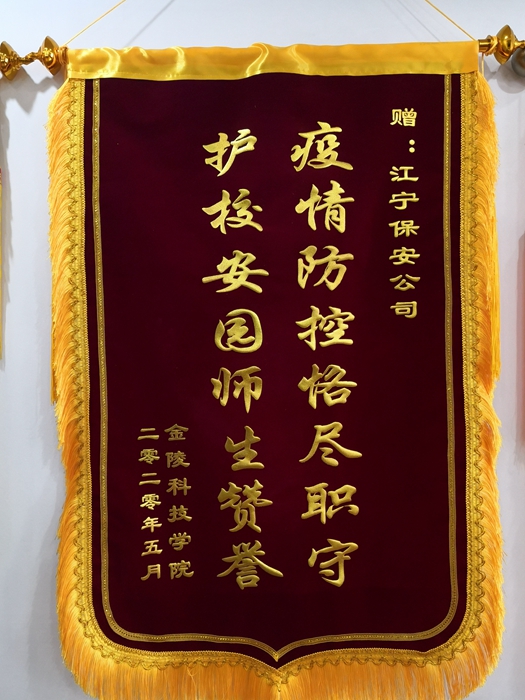 赠：江宁保安公司
疫情防控恪尽职守
护校安园师生赞誉
金陵科技学院
二零二零年五月